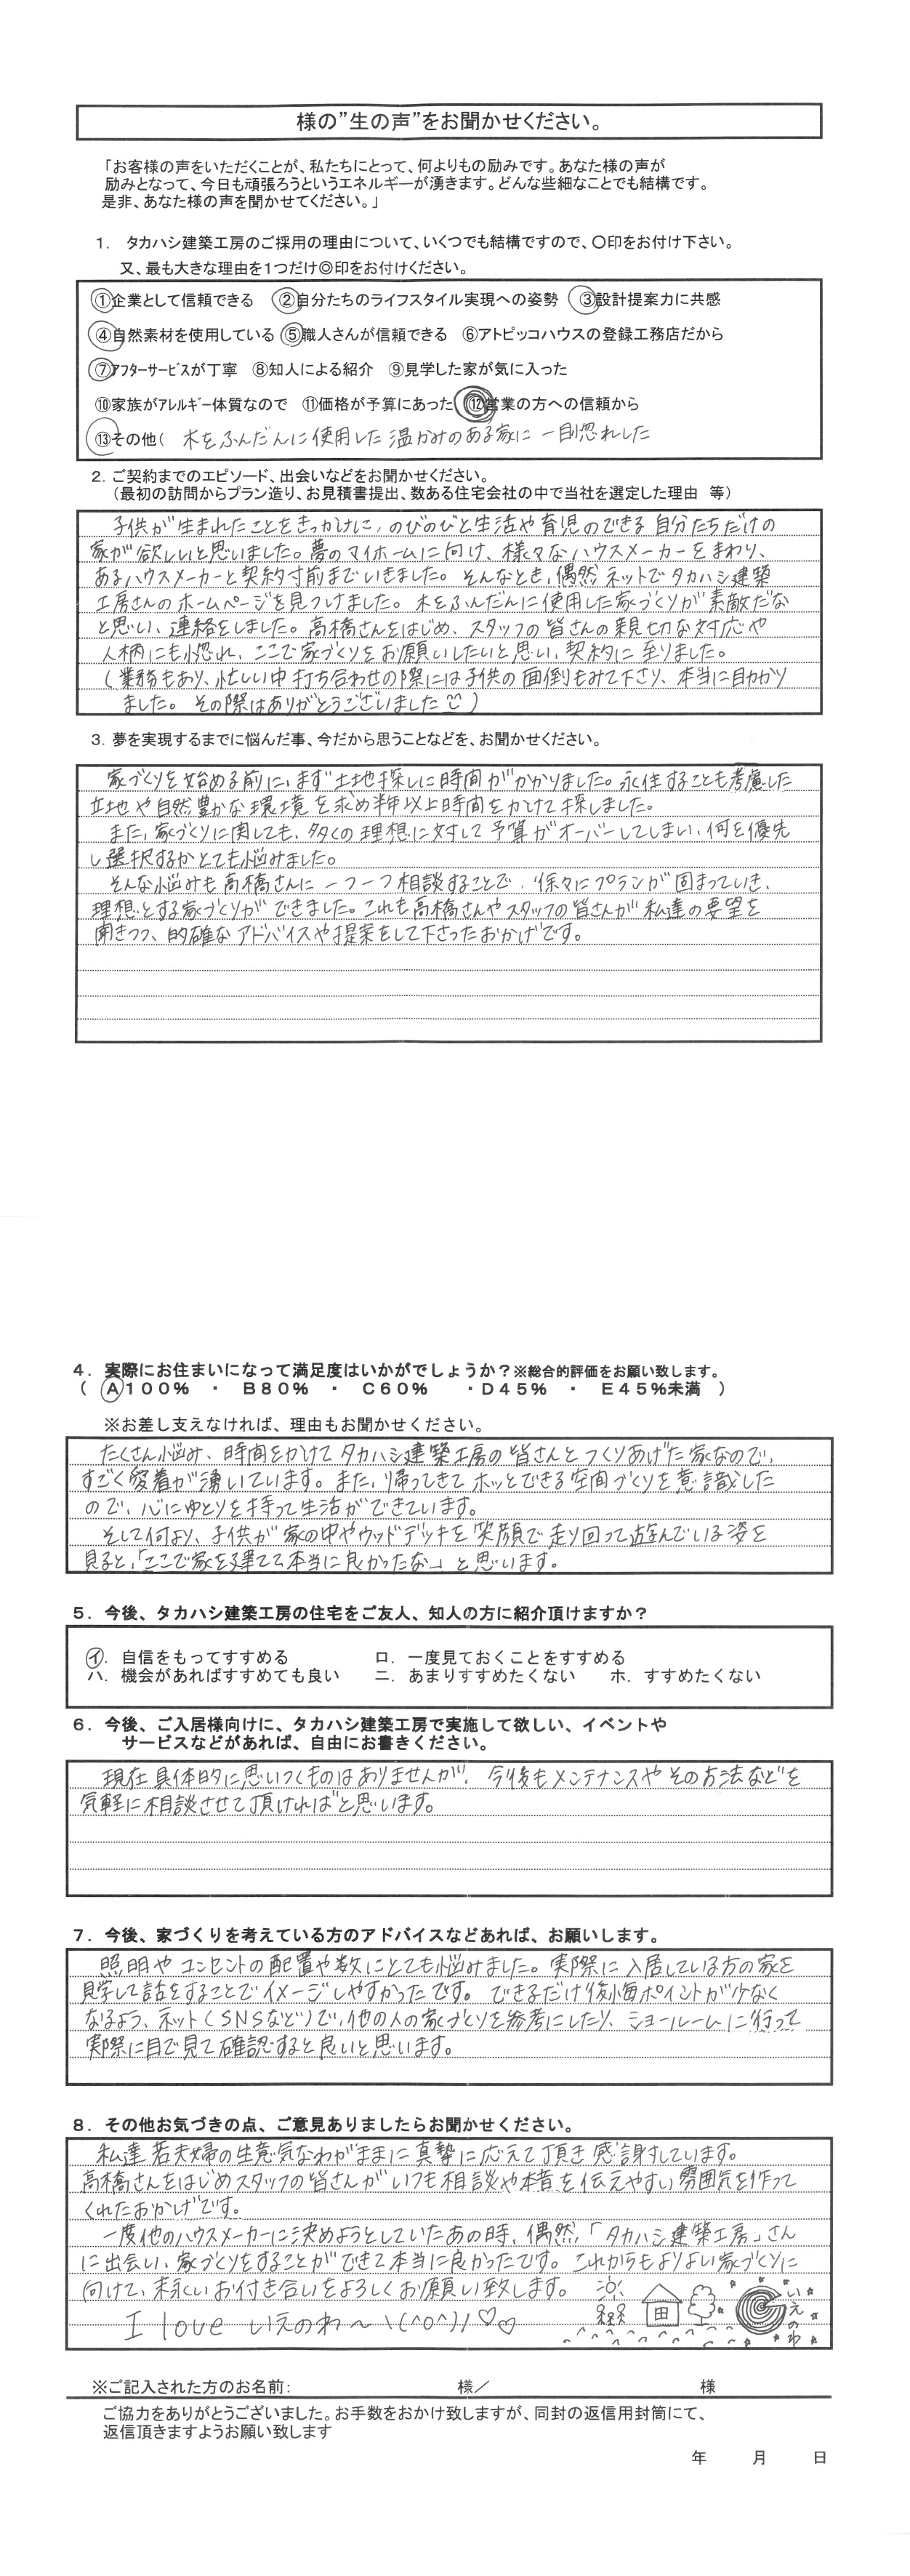 様の”生の声”をお聞かせください。
「お客様の声をいただくことが、私たちにとって、何よりもの励みです。あなた様の声が
励みとなって、今日も頑張ろうというエネルギーが湧きます。どんな些細なことでも結構です。
是非、あなた様の声を聞かせてください。」
1. タカハシ建築工房のご採用の理由について、いくつでも結構ですので、〇印をお付け下さい。
又、最も大きな理由を1つだけ◎印をお付けください。
①企業として信頼できる ②自分たちのライフスタイル実現への姿勢 ③設計提案力に共感
④自然素材を使用している ⑤職人さんが信頼できる ⑥アトピッコハウスの登録工務店だから
⑦アフターサービスが丁寧 ⑧知人による紹介 ⑨見学した家が気に入った
⑩家族がアレルギー体質なので ⑪価格が予算にあった ⑫営業の方への信頼から
⑬その他( 木をふんだんに使用した温かみのある家に一目惚れした
2. ご契約までのエピソード、出会いなどをお聞かせください。
(最初の訪問からプラン造り、お見積書提出、数ある住宅会社の中で当社を選定した理由 等)
子供が生まれたことをきっかけに、のびのびと生活や育児のできる自分たちだけの
家が欲しいと思いました。夢のマイホームに向け、様々なハウスメーカーをまわり、
あるハウスメーカーと契約寸前までいきました。そんなとき、偶然ネットでタカハシ建築
工房さんのホームページを見つけました。木をふんだんに使用した家づくりが素敵だな
と思い、連絡をしました。高橋さんをはじめ、スタッフの皆さんの親切な対応や
人柄にも惚れ、ここで家づくりをお願いしたいと思い、契約に至りました。
(業務もあり、忙しい中打ち合わせの際には子供の面倒もみて下さり、本当に助かり
ました。その際はありがとうございました^^)
3. 夢を実現するまでに悩んだ事、今だから思うことなどを、お聞かせください。
家づくりを始める前に、まず土地探しに時間がかかりました。永住することも考慮した
立地や自然豊かな環境を求め半年以上時間をかけて探しました。
また、家づくりに関しても、多くの理想に対して予算がオーバーしてしまい、何を優先
し選択するかとても悩みました。
そんな悩みも高橋さんに一つ一つ相談することで、徐々にプランが固まっていき、
理想とする家づくりができました。これも高橋さんやスタッフの皆さんが私達の要望を
聞きつつ、的確なアドバイスや提案をして下さったおかげです。
4. 実際にお住まいになって満足度はいかがでしょうか?※総合的評価をお願い致します。
( A100% ・ B80% ・ C60% ・D45% ・ E45%未満 )
※お差し支えなければ、理由もお聞かせください。
たくさん悩み、時間をかけてタカハシ建築工房の皆さんとつくりあげた家なので、
すごく愛着が湧いています。また、帰ってきてホッとできる空間づくりを意識した
ので、心にゆとりを持って生活ができています。
そして何より、子供が家の中やウッドデッキを笑顔で走り回って遊んでいる姿を
見ると、「ここで家を建てて本当に良かったな」と思います。
5. 今後、タカハシ建築工房の住宅をご友人、知人の方に紹介頂けますか?
イ. 自信をもってすすめる ロ. 一度見ておくことをすすめる
ハ. 機会があればすすめても良い ニ. あまりすすめたくない ホ. すすめたくない
6. 今後、ご入居様向けに、タカハシ建築工房で実施して欲しい、イベントや
サービスなどがあれば、自由にお書きください。
現在具体的に思いつくものはありませんが、今後もメンテナンスやその方法などを
気軽に相談させて頂ければと思います。
7. 今後、家づくりを考えている方のアドバイスなどあれば、お願いします。
照明やコンセントの配置や数にとても悩みました。実際に入居している方の家を
見学して話をすることでイメージしやすかったです。できるだけ後悔ポイントが少なく
なるよう、ネット(SNSなど)で、他の人の家づくりを参考にしたり、ショールームに行って
実際に目で見て確認すると良いと思います。
8. その他お気づきの点、ご意見ありましたらお聞かせください。
私達若夫婦の生意気なわがままに真摯に応えて頂き感謝しています。
高橋さんをはじめスタッフの皆さんがいつも相談や本音を伝えやすい雰囲気を作って
くれたおかげです。
一度他のハウスメーカーに決めようとしていたあの時、偶然「タカハシ建築工房」さん
に出会い、家づくりをすることができて本当に良かったです。これからもよりよい家づくりに
向けて、末永いお付き合いをよろしくお願い致します。
I love いえのわ〜\(^o^)/♡♡
いえのわ
※ご記入された方のお名前: 様/ 様
ご協力をありがとうございました。お手数をおかけ致しますが、同封の返信用封筒にて、
返信頂きますようお願い致します
年 月 日